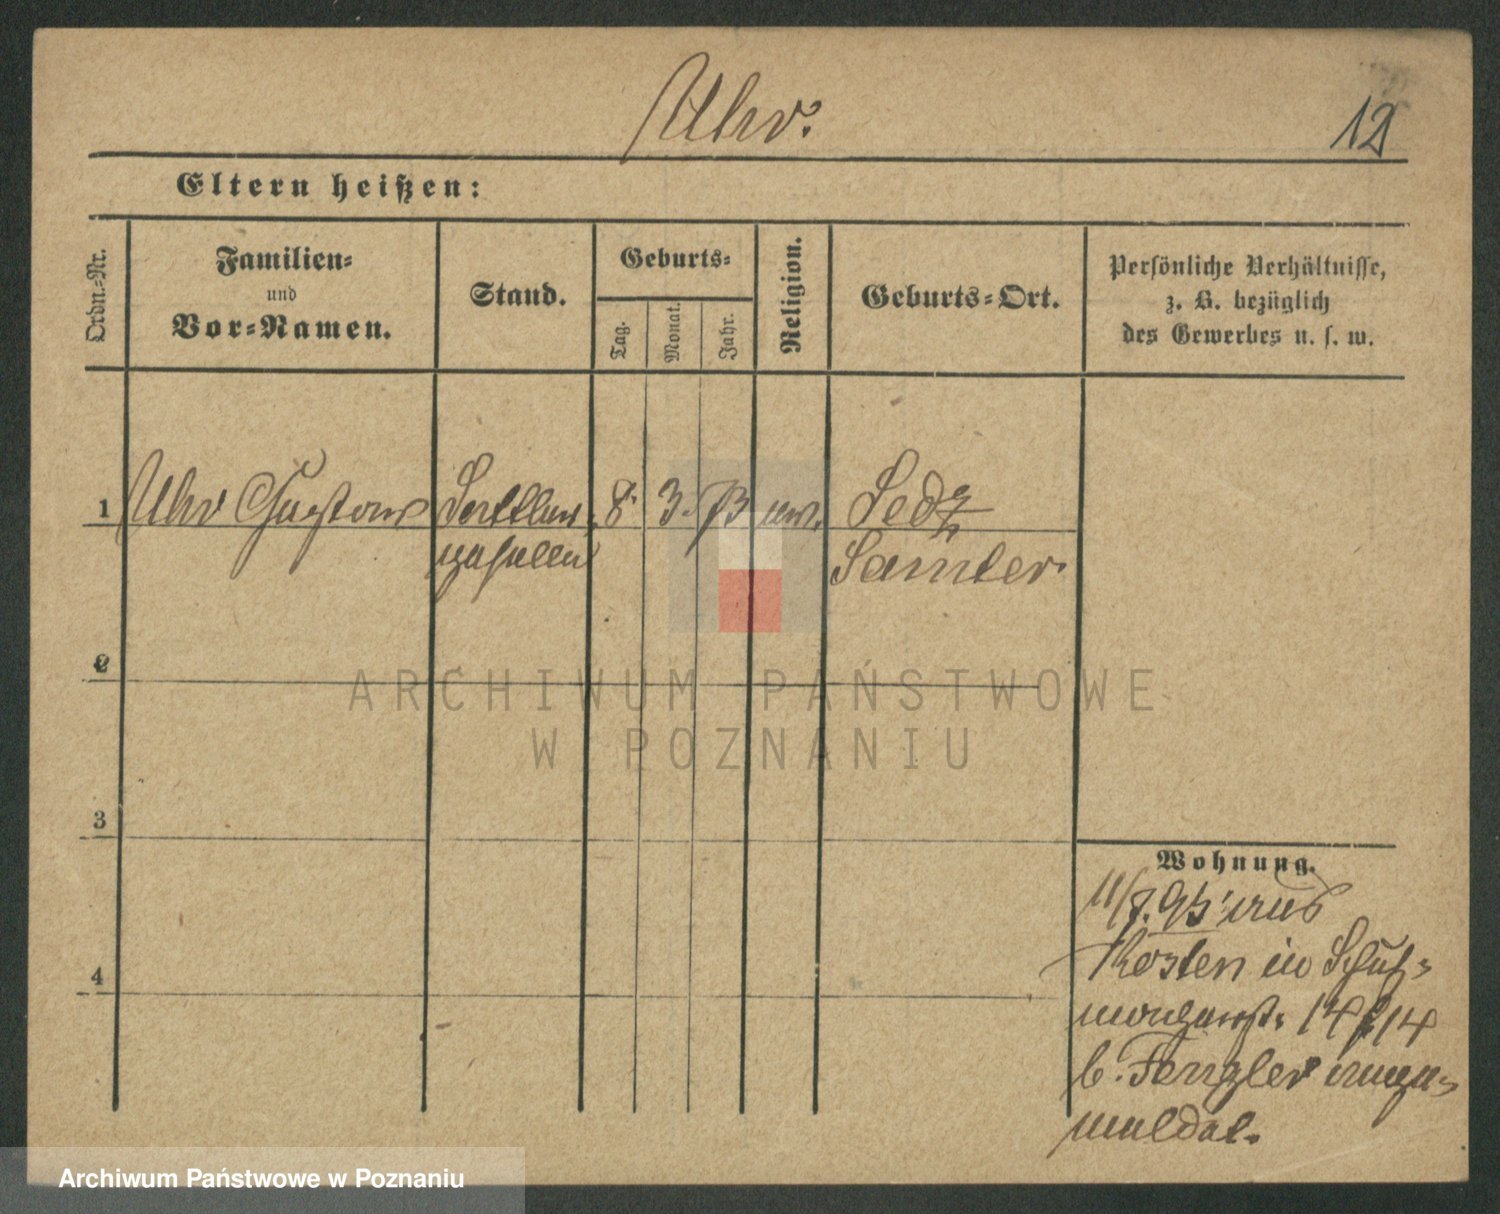 Uhr.
12
Eltern heißen:
Ordn.-Nr.
Familien-
und
Vor-Namen.
Stand.
Geburts-
Tag.
Monat.
Jahr.
Religion.
Geburts-Ort.
Persönliche Verhältnisse,
z. B. bezüglich
des Gewerbes u. s. w.
1 Uhr Gustav Sattler 8. 3. 73 ev.
gesellen
Samter
2
3
4
Wohnung.
11/7. 95 aus
Kosten in Schütz-
14
b. Fengler ange-
meldet.
ARCHIWUM PAŃSTWOWE
W POZNANIU
Archiwum Państwowe w Poznaniu